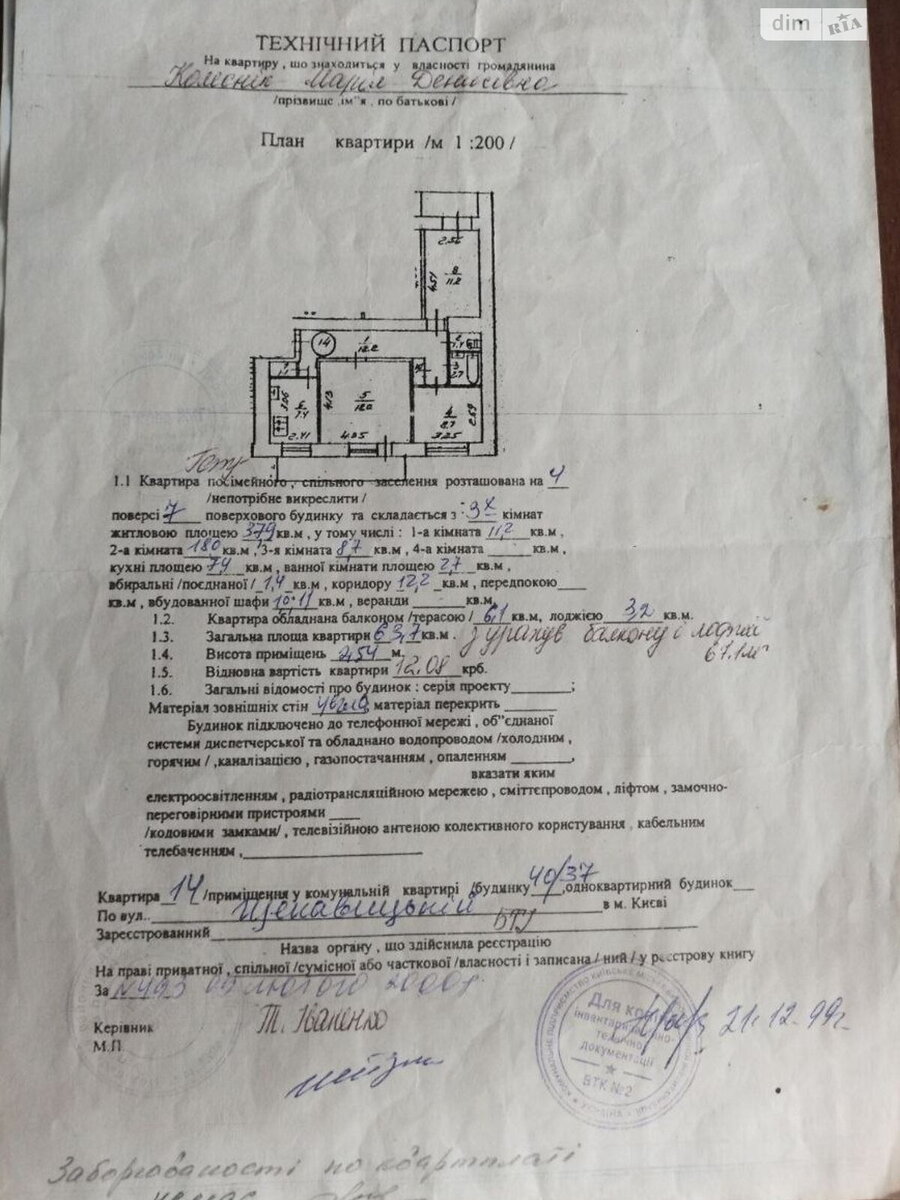 dim RIA
ТЕХНІЧНИЙ ПАСПОРТ
На квартиру , що знаходиться у власності громадянина
Колєснік Марія Денисівна
/прізвище ,ім"я , по батькові /
План квартири /м 1 :200 /
2.56
4.51
8
11.2
14
1
12.2
2
1.4
3
2.7
3.06
6
7.4
2.41
4.13
5
18.0
4.05
4
8.7
2.69
3.25
1.1 Квартира посімейного , спільного заселення розташована на 4
/непотрібне викреслити /
поверсі 7 поверхового будинку та складається з : 3х кімнат
житловою площею 37,9 кв.м , у тому числі : 1-а кімната 11,2 кв.м ,
2-а кімната 18,0 кв.м , 3-я кімната 8,7 кв.м , 4-а кімната кв.м ,
кухні площею 7,4 кв.м , ванної кімнати площею 2,7 кв.м ,
вбиральні /поєднаної / 1,4 кв.м , коридору 12,2 кв.м , передпокою
кв.м , вбудованної шафи кв.м , веранди кв.м,
1.2. Квартира обладнана балконом /терасою / 6,1 кв.м, лоджією 3,2 кв.м.
1.3. Загальна площа квартири 63,7 кв.м . з урахув балкону і лоджій
61.1м²
1.4. Висота приміщень 2,54 м.
1.5. Відновна вартість квартири 12.08 крб.
1.6. Загальні відомості про будинок : серія проекту ;
Матеріал зовнішніх стін цегла, матеріал перекрить
Будинок підключено до телефонної мережі , об"єднаної
системи диспетчерської та обладнано водопроводом /холодним ,
горячим / ,каналізацією , газопостачанням , опаленням ,
вказати яким
електроосвітленням , радіотрансляційною мережею , сміттєпроводом , ліфтом , замочно-
переговорними пристроями
/кодовими замками/ , телевізійною антеною колективного користування , кабельним
телебаченням ,
Квартира 14 /приміщення у комунальній квартирі /будинку 40/37 ,одноквартирний будинок
По вул.. Щекавицькій в м. Києві
Зареєстрованний БТІ
Назва органу , що здійснила реєстрацію
На праві приватної , спільної /сумісної або часткової /власності і записана / ний / у реєстрову книгу
За №493 09 лютого 2000р
Керівник Т. Іваненко 21.12.99г.
М.П.
Для
інвентаризаційно-
технічної
документації
БТК №2
Заборгованості по квартплаті
немає